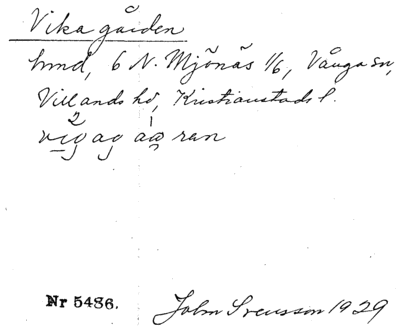 Vikagården
hmd, 6 N. Mjönäs 1/6, Vånga sn,
Villands hd, Kristianstads l.
Nr 5486.
John Svensson 1929